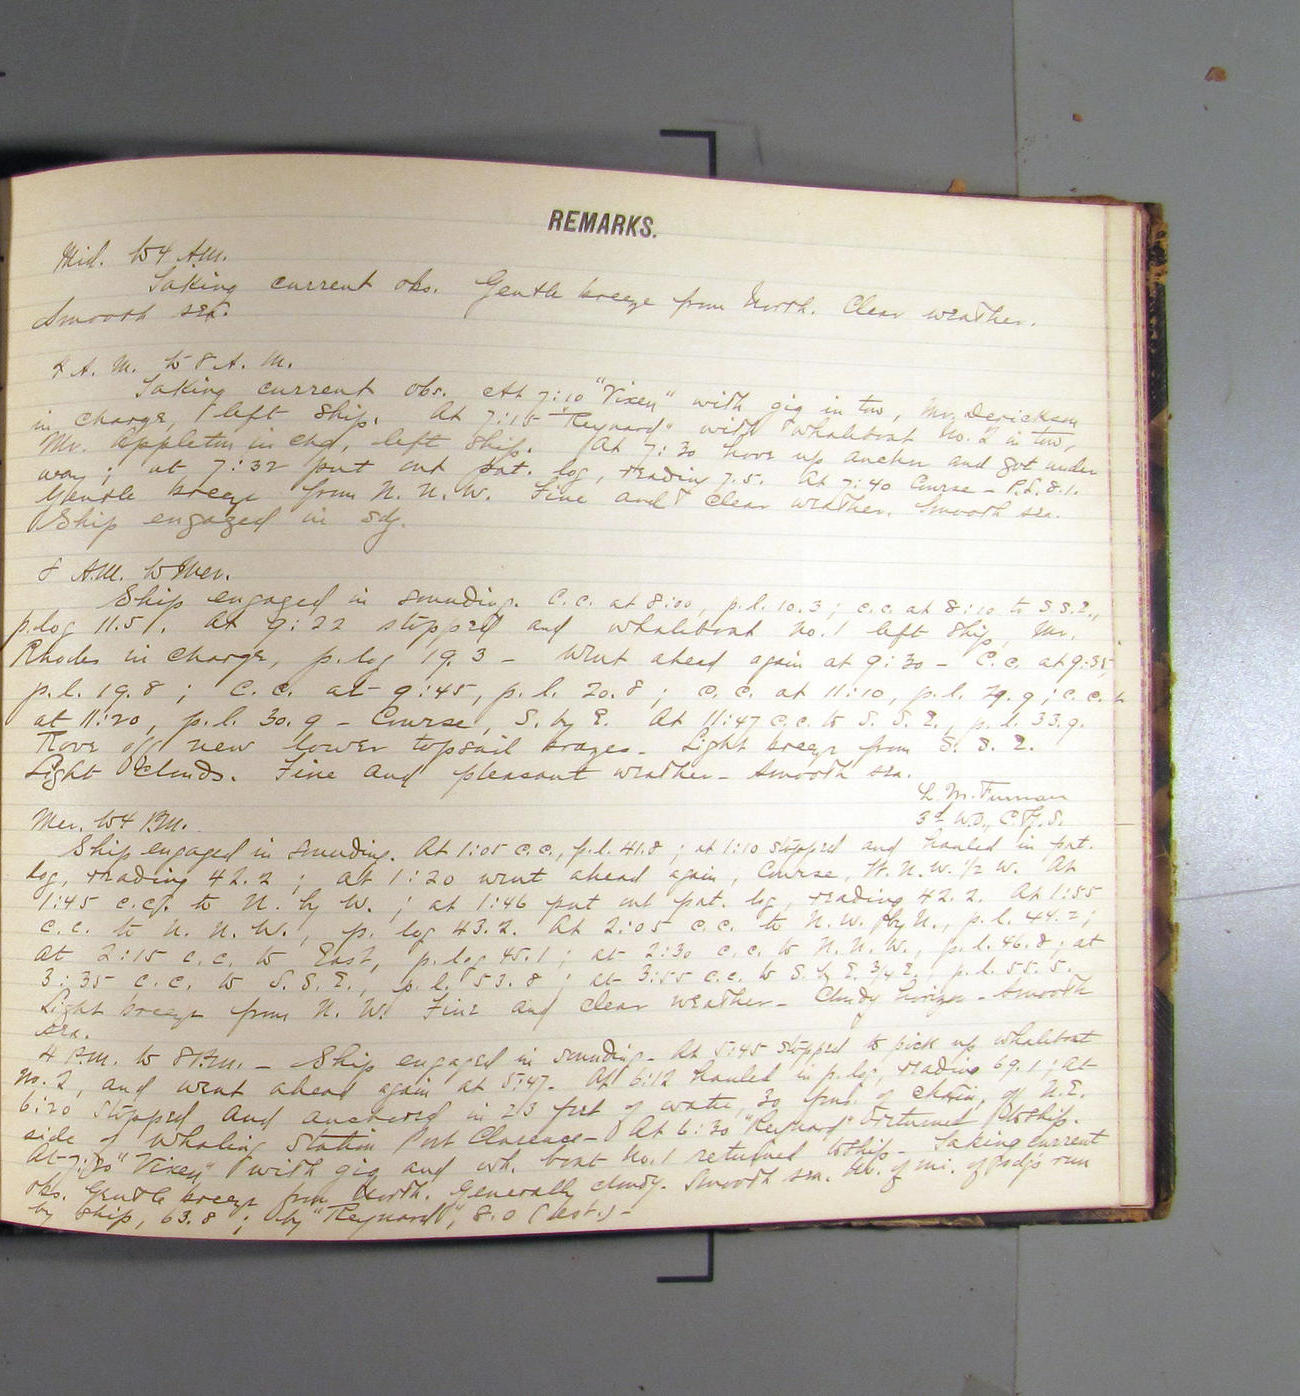 REMARKS.
Mid. to 4 A.M.
Taking current obs. Gentle breeze from North. Clear weather.
Smooth sea.
4 A. M. to 8 A. M.
Taking current obs. At 7:10 "Vixen" with gig in tow, Mr. Derickson
in charge, left ship. At 7:15 "Reynard" with whaleboat No. 2 in tow,
Mr. Appleton in chg, left ship. At 7:30 hove up anchor and got under
way; at 7:32 put out pat. log, reading 7.5. At 7:40 Course - P.L. 8.1.
Gentle breeze from N. N. W. Fine and clear weather. Smooth sea.
Ship engaged in sdg.
8 A.M. to Mer.
Ship engaged in sounding. C.C. at 8:00, p.l. 10.3; c.c. at 8:10 to S.S.E.,
p.log 11.5. At 9:22 stopped and whaleboat No. 1 left ship, Mr.
Rhodes in charge, p.log 19.3 - Went ahead again at 9:30 - C.C. at 9:35,
p.l. 19.8; C.C. at 9:45, p.l. 20.8; C.C. at 11:10, p.l. 29.9; c.c.
at 11:20, p.l. 30.9 - Course, S. by E. At 11:47 c.c. to S. S. E., p.l. 33.9.
Rove off new lower topsail braces - Light breeze from S. S. E.
Light clouds. Fine and pleasant weather - Smooth sea.
L. M. Furman
3d W.O., C.&G.S.
Mer. to 4 P.M.
Ship engaged in sounding. At 1:05 c.c., p.l. 41.8; at 1:10 stopped and hauled in pat.
log, reading 42.2; at 1:20 went ahead again, Course, W. N. W. 1/2 W. At
1:45 c.c. to N. by W.; at 1:46 put out pat. log, reading 42.2. At 1:55
c.c. to N. N. W., p. log 43.2. At 2:05 c.c. to N. W. by N., p.l. 44.2;
at 2:15 c.c. to East, p.log 45.1; at 2:30 c.c. to N. N. W., p.l. 46.8; at
3:35 c.c. to S. S. E., p.l. 53.8; at 3:55 c.c. to S. by E. 3/4 E., p.l. 55.5.
Light breeze from N. W. Fine and clear weather - Cloudy horizon - Smooth
sea.
4 P.M. to 8 P.M. - Ship engaged in sounding - At 5:45 stopped to pick up whaleboat
No. 2, and went ahead again at 5:47. At 6:12 hauled in p.log, reading 69.1; at
6:20 stopped and anchored in 23 feet of water, 30 fms. of chain, off N.E.
side of Whaling Station Port Clarence - At 6:30 "Reynard" returned to ship.
At "Vixen" with gig and wh. boat No. 1 returned to ship - Taking current
obs. Gentle breeze from North. Generally cloudy. Smooth sea. No. of mi. of sdgs run
by ship, 63.8; by "Reynard", 8.0 (est.) -